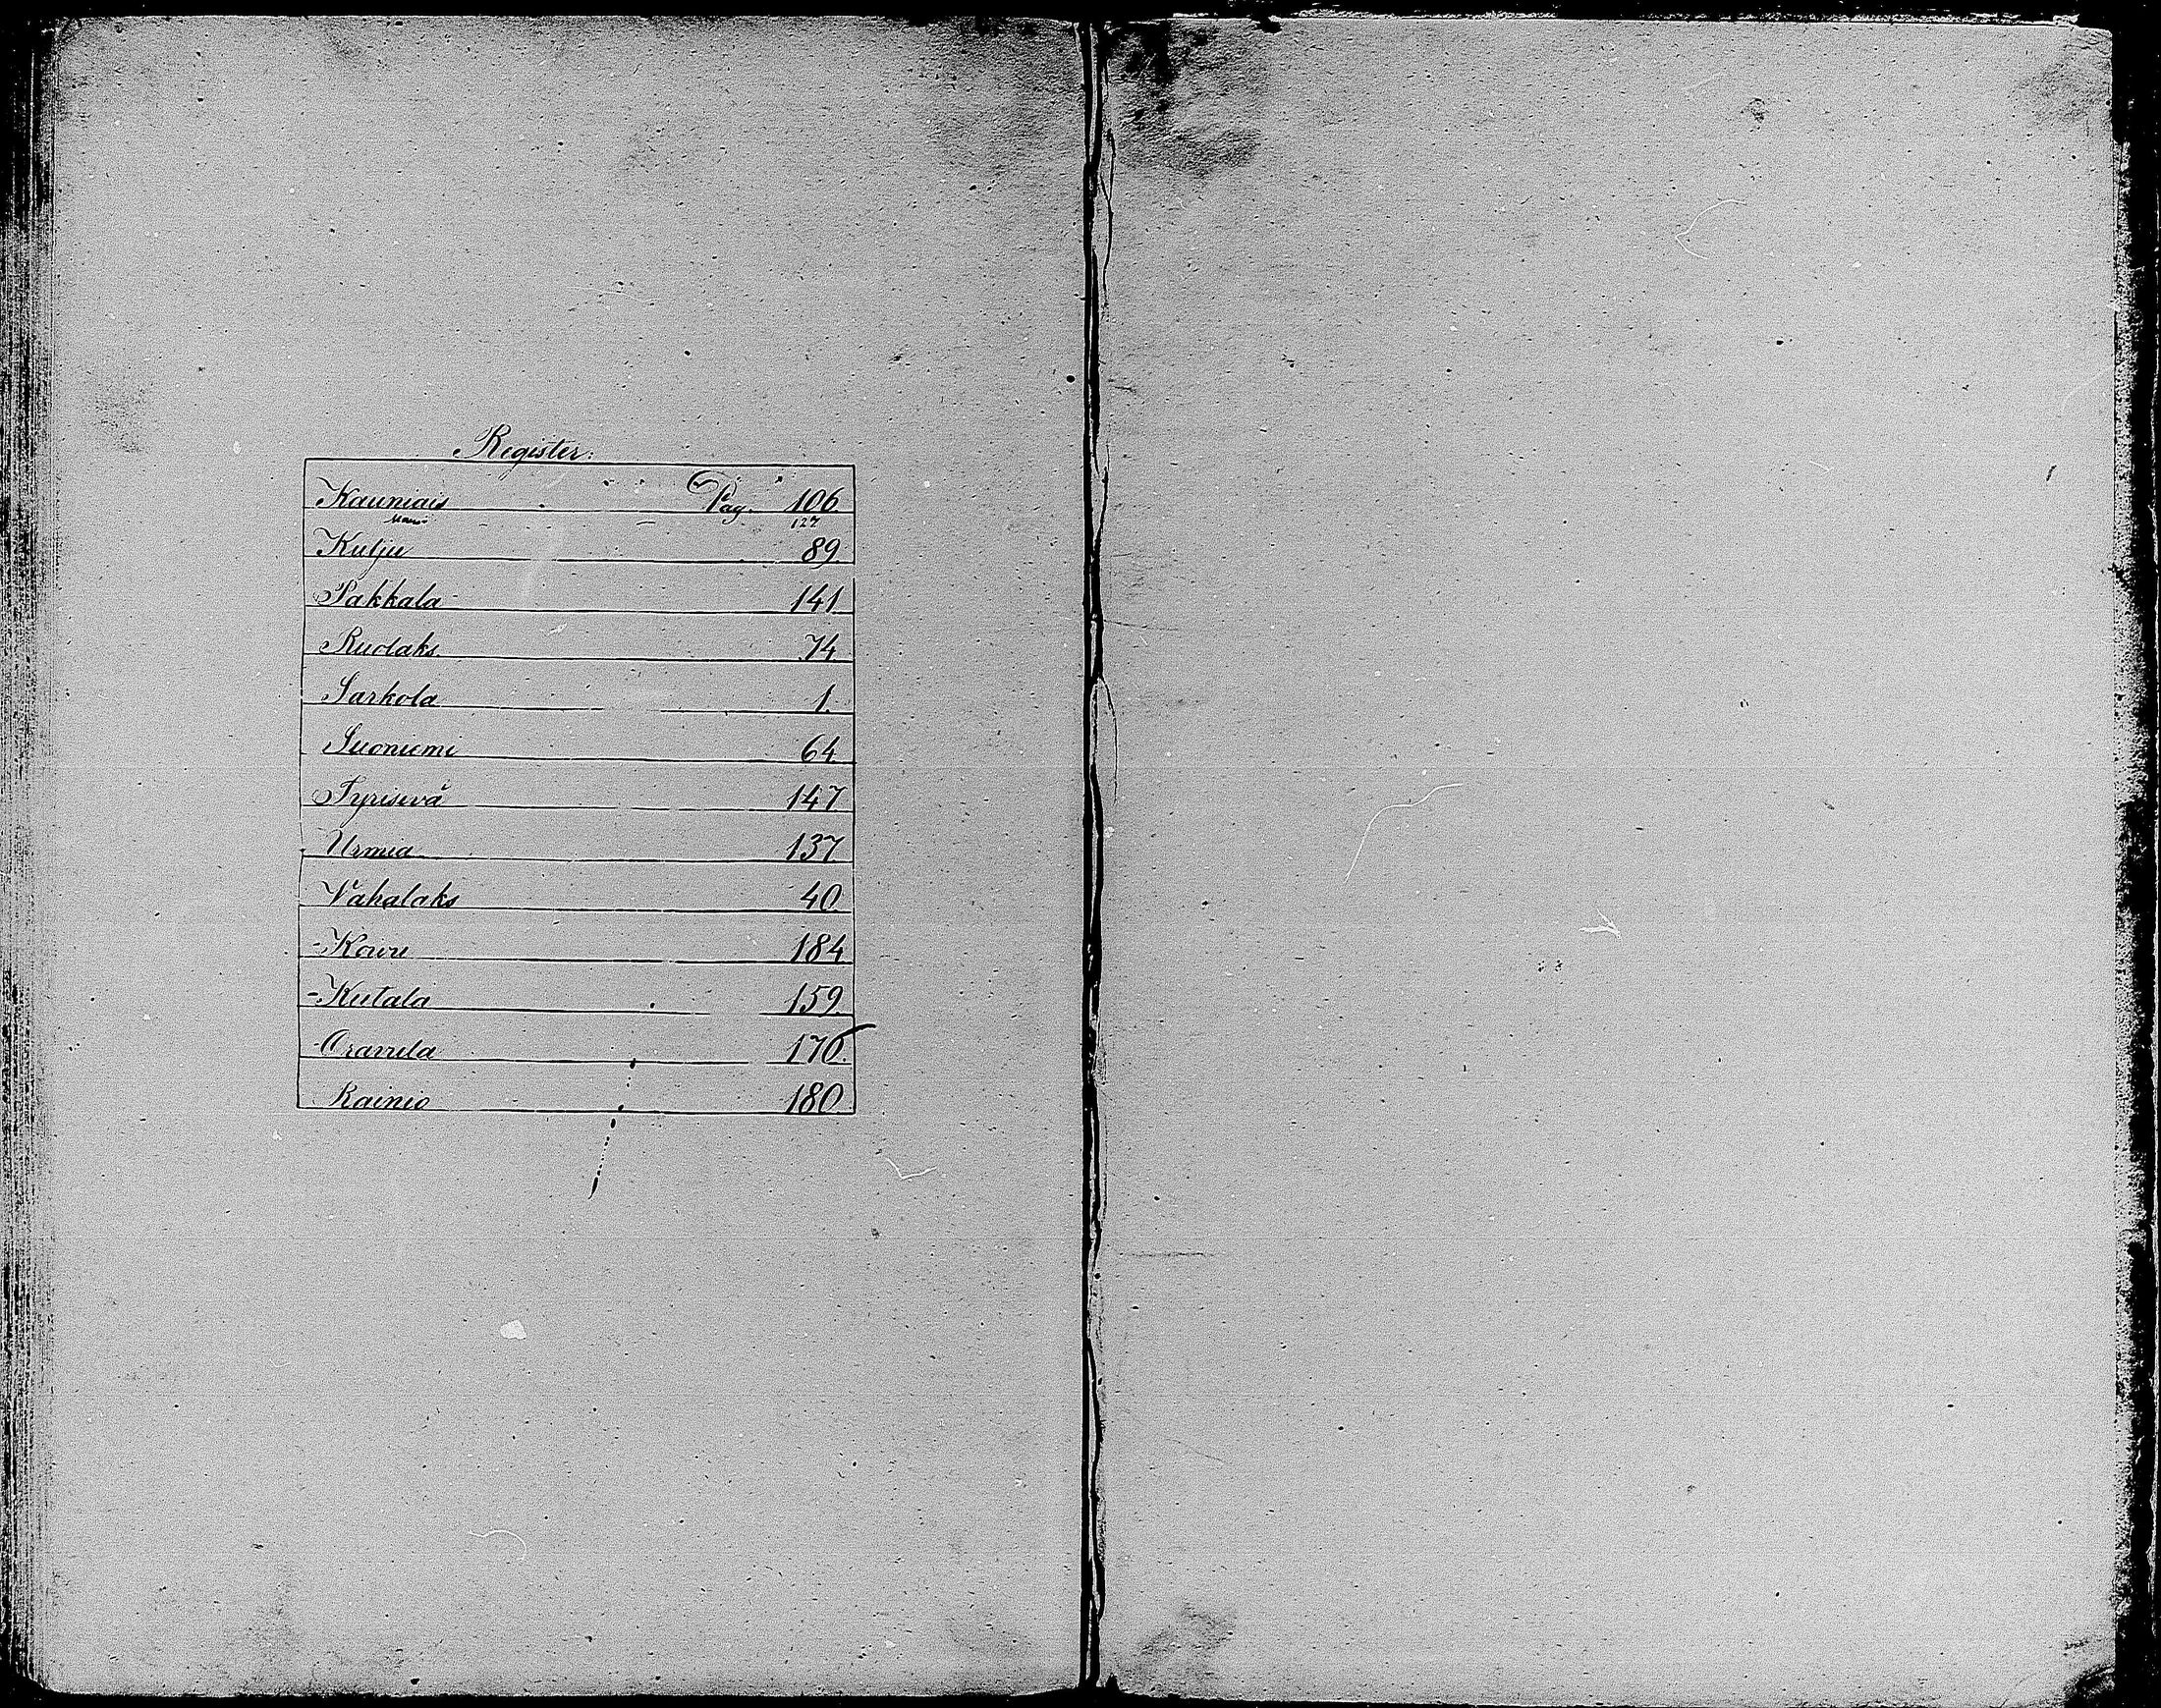 Register:
Kauniais Pag. 106
127
Kulju 89.
Pakkala 141
Ruolaks 74
Sarkola 1.
Suoniemi 64
Tyrisevä 147
Urmia 137
Vahalaks 40.
- Kowri 184
- Kutala 159.
- Oravila 170.
Rainio 180